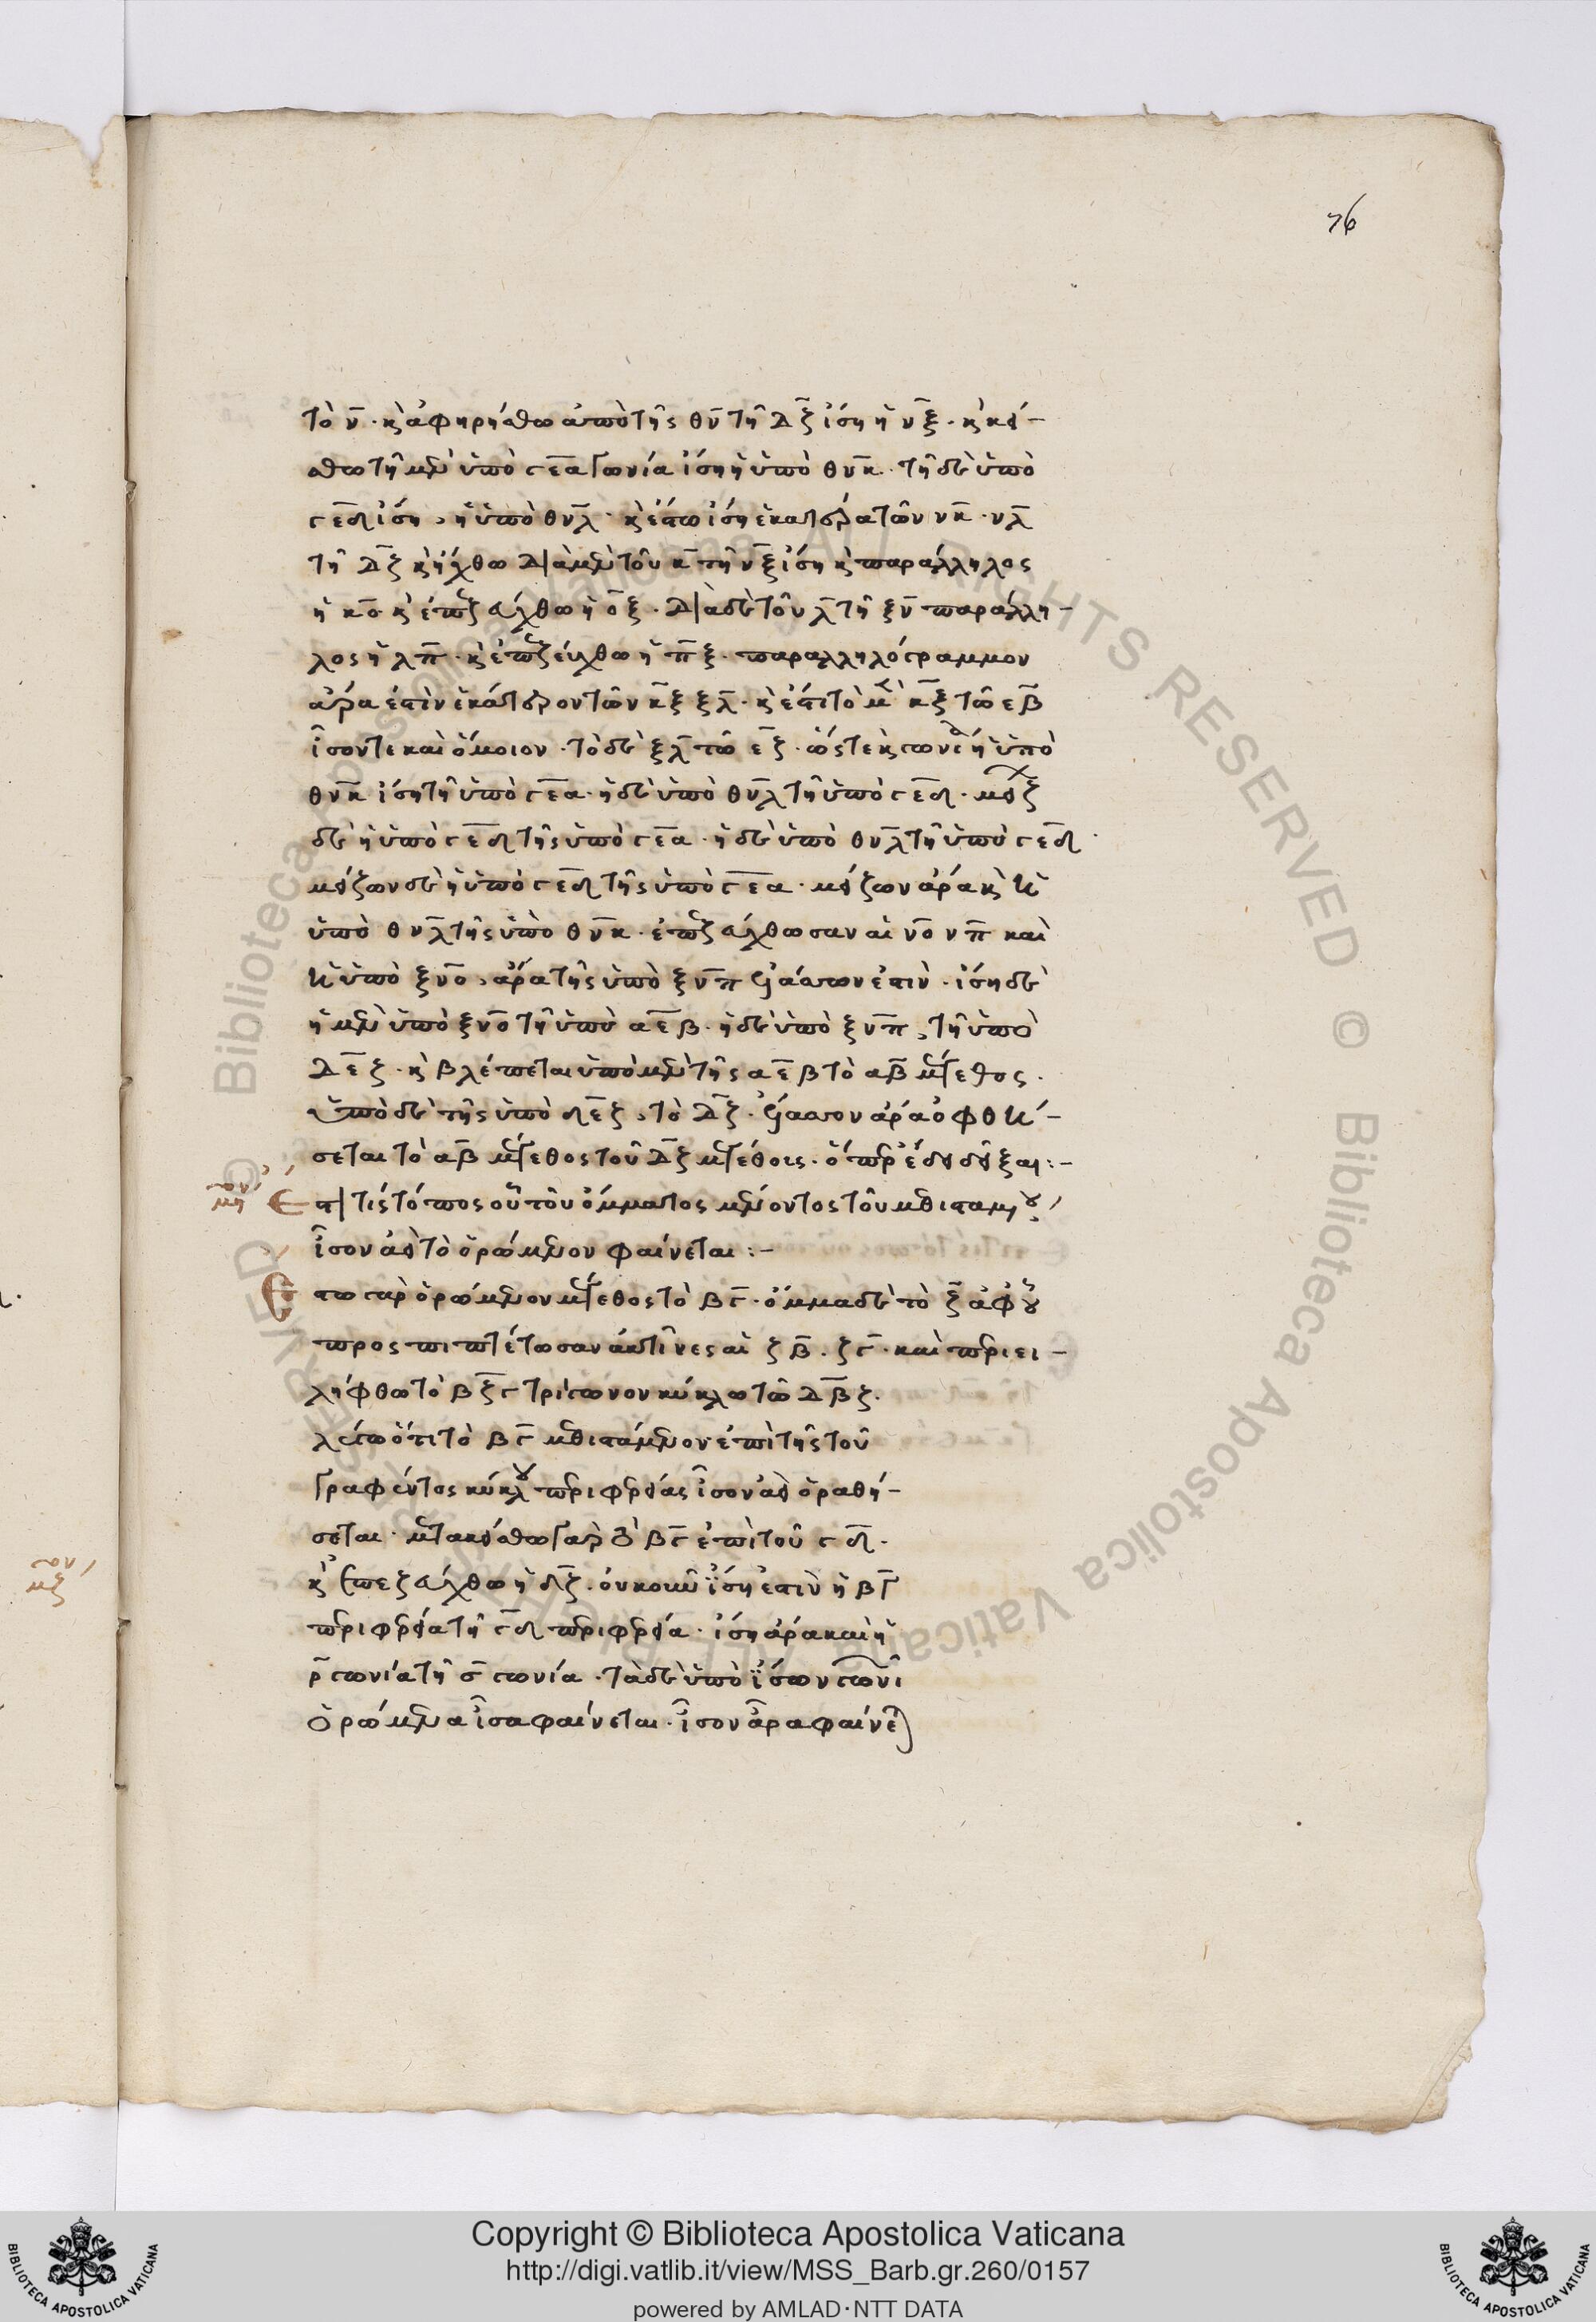 76
τὸ ν̄ · κ̀ ἀφηρήσθω ἀπὸ τῆς θν̄ τῆ δζ̄ ἴση ἡ νξ̄ · κ̀ κεί-
σθω τῆ μὲν ὑπὸ γεᾱ γωνία ἴση ἡ ὑπὸ θνκ̄ · τῆ δὲ ὑπὸ
γεδ̄ ἴση, ἡ ὑπὸ θνλ̄ · κ̀ ἔστω ἴση ἑκατέρα τῶν νκ̄ · νλ̄
τῆ δζ̄ κ̀ ἤχθω διὰ μὲν τοῦ κ̄ τῆ νξ̄ ἴση κ̀ παράλληλος
ἡ κο̄ κ̀ ἐπεζεύχθω ἡ οξ̄ · διὰ δὲ τοῦ λ̄ τῆ ξν̄ παράλλη-
λος ἡ λπ̄ · κ̀ ἐπεζεύχθω ἡ πξ̄ · παραλληλόγραμμον
ἄρα ἐστὶν ἑκάτερον τῶν κξ̄ ξλ̄ · κ̀ ἔστι τὸ μὲν κξ̄ τῶ εβ̄
ἴσον τε καὶ ὅμοιον · τὸ δὲ ξλ̄ τῶ εζ̄ · ὥστε κ̀ γωνία ἡ ὑπὸ
θνκ̄ ἴση τῆ ὑπὸ γεᾱ · ἡ δὲ ὑπὸ θνλ̄ τῆ ὑπὸ γεδ̄ · μείζων
δὲ ἡ ὑπὸ γεδ̄ τῆς ὑπὸ γεᾱ · ἡ δὲ ὑπὸ θνλ̄ τῆ ὑπὸ γεδ̄ ·
μείζων δὲ ἡ ὑπὸ γεδ̄ τῆς ὑπὸ γεᾱ · μείζων ἄρα κ̀ ἡ
ὑπὸ θνλ̄ τῆς ὑπὸ θνκ̄ · ἐπεζεύχθωσαν αἱ νο̄ νπ̄ καὶ
ἡ ὑπὸ ξνο̄, ἄρα τῆς ὑπὸ ξνπ̄ ἔλασσον ἐστὶν · ἴση δὲ
ἡ μὲν ὑπὸ ξνο̄ τῆ ὑπὸ αεβ̄ · ἡ δὲ ὑπὸ ξνπ̄, τῆ ὑπὸ
δεζ̄ · κ̀ βλέπεται ὑπὸ μὲν τῆς αεβ̄ τὸ αβ̄ μέγεθος ·
ὑπὸ δὲ τῆς ὑπὸ δεζ̄, τὸ δζ̄ · ἔλασσον ἄρα ὀφθή-
σεται τὸ αβ̄ μέγεθος τοῦ δζ̄ μεγέθους · ὅπερ ἔδει δεῖξαι :-
μη̄ον Εστι τίς τόπος οὗ τοῦ ὄμματος μένοντος τοῦ μεθισταμένου
ἴσον ἀεὶ τὸ ὁρώμενον φαίνεται :-
Εστω γὰρ ὁρώμενον μέγεθος τὸ βγ̄ · ὄμμα δὲ τὸ ζ̄ ἀφ' οὗ
προσπιπτέτωσαν ἀκτῖνες αἱ ζβ̄ · ζγ̄ · καὶ περιει-
λήφθω τὸ βζγ̄ τρίγωνον κύκλω τῶ δβζ̄ ·
λέγω ὅτι τὸ βγ̄ μεθιστάμενον ἐπὶ τῆς τοῦ
γραφέντος κύκλου περιφερείας ἴσον ἀεὶ ὁραθή-
σεται · μετακείσθω γὰρ ὁ βγ̄ ἐπὶ τοῦ γδ̄ ·
κ̀ ἐπεζεύχθω ἡ δζ̄ · οὐκοῦν ἴση ἐστὶν ἡ βγ̄
περιφέρεια τῆ γδ̄ περιφερεία · ἴση ἄρα καὶ ἡ
ρ̄ γωνία τῆ σ̄ γωνία · τὰ δὲ ὑπὸ ἴσων γωνι
ὁρώμενα ἴσα φαίνεται · ἴσον ἄρα φαίνεται
μζ̄ον
Copyright © Biblioteca Apostolica Vaticana
http://digi.vatlib.it/view/MSS_Barb.gr.260/0157
powered by AMLAD·NTT DATA
BIBLIOTECA APOSTOLICA VATICANA
BIBLIOTECA APOSTOLICA VATICANA